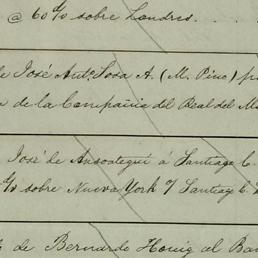 @ 60 d/v sobre Londres. . . .
de José Anto Sosa A. (M. Pino) p
de la Compañia del Real del M
José de Ansoategui á Santiago C.
d/v sobre Nueva York o/ Santiago C.
de Bernardo Honig al Ban